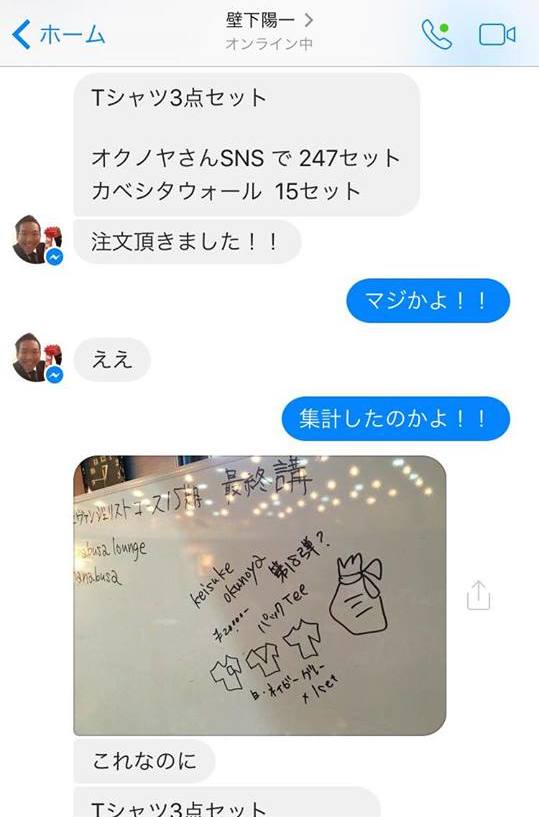 ホーム
壁下陽一
オンライン中
Tシャツ3点セット
オクノヤさんSNS で 247セット
カベシタウォール 15セット
注文頂きました！！
マジかよ！！
ええ
集計したのかよ！！
ヴァンジェリストコース15期 最終講
abusa lounge
anabusa
keisuke
okunoya
第182弾?
パックTee
白・ネイビー・グレー
× 1set
これなのに
Tシャツ3点セット